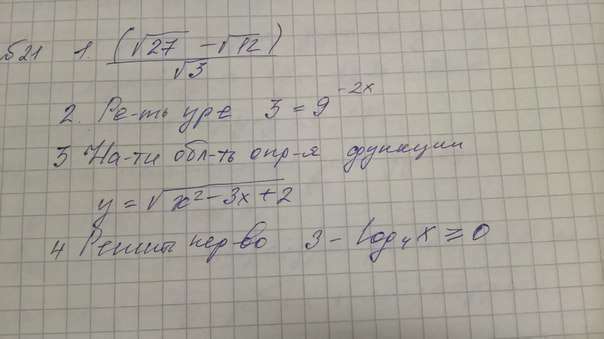 б21 1. (√27 - √12) / √3
2. Ре-ть уре 3 = 9^-2x
3 На-ти обл-ть опр-я функции
y = √x² - 3x + 2
4 Решить нер-во 3 - log₄x ≥ 0